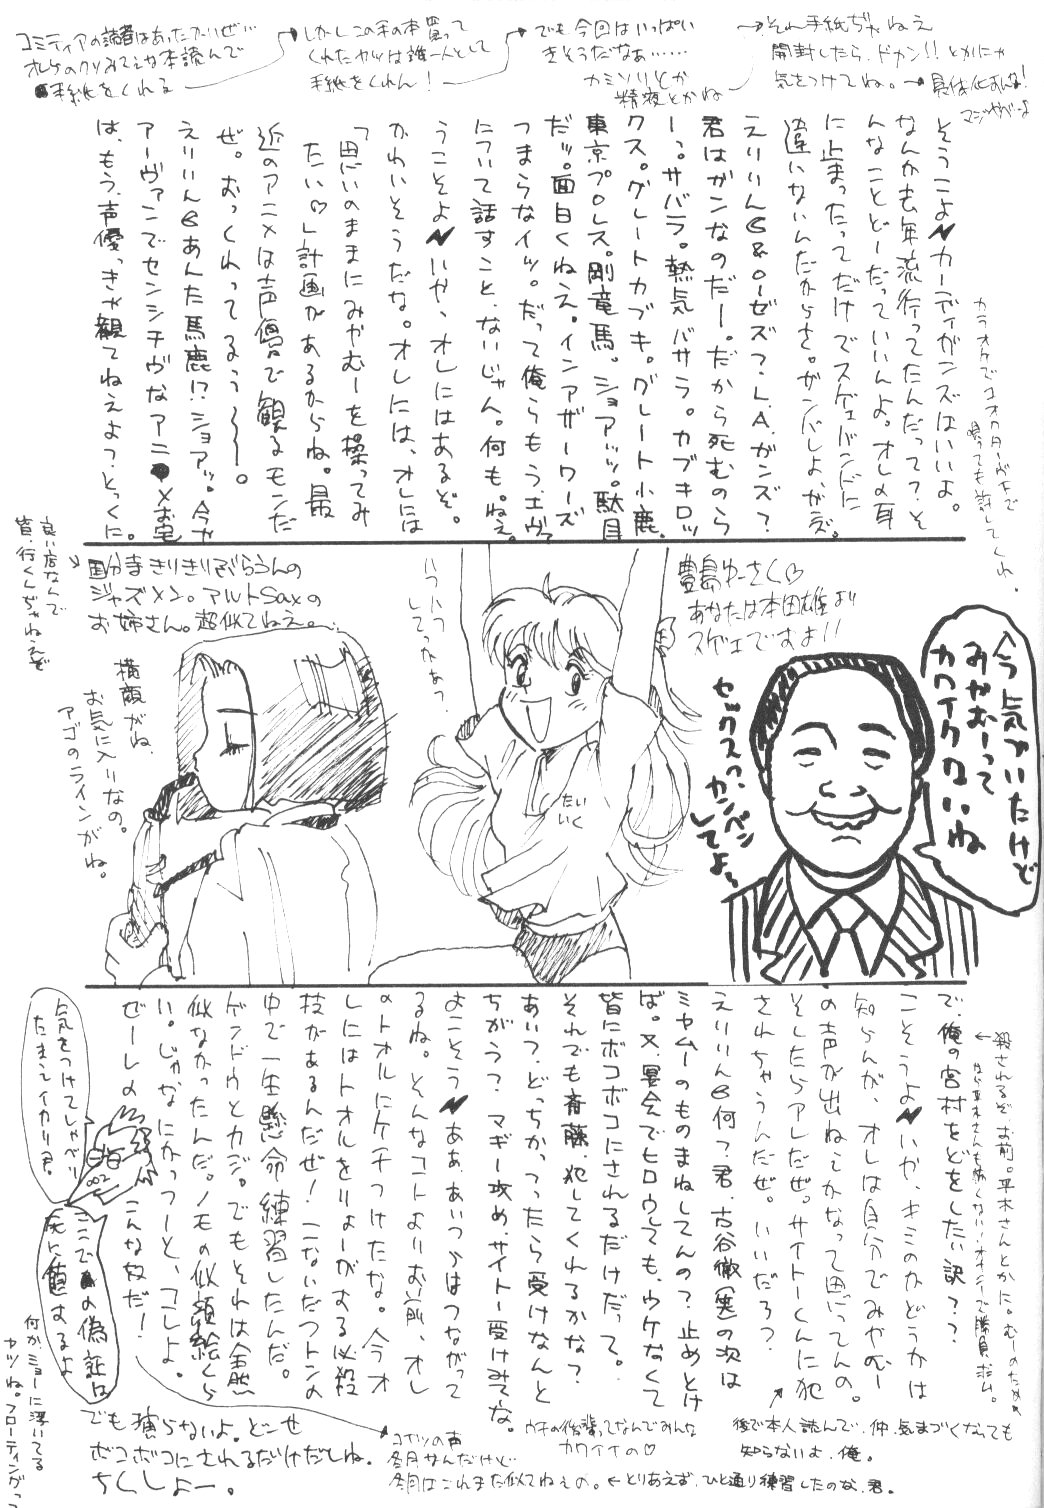 コミティアの読者はあったかいぜ…
オレらのクソみてえな本読んで
手紙をくれる
しかしこの手の本買って
くれたヤツは誰一人として
手紙をくれん!
でも今回はいっぱい
きそうだなぁ……
カミソリとか
精液とかね
それ手紙ぢゃねえ
開封したら、ドカン!!とかにゃ
気をつけてね。→具体化すんな!
マジやべーよ
そうこよ カーディガンズはいいよ。
なんかも年流行ってたんだって?そ
んなことどーだっていいんよ。オレの耳
に止まったってだけでスゲェバンドに
違いないんだからさ。ガンバしよ、がぎ。
えりりん&ローゼズ?L.A.ガンズ?
君はガンなのだー。だから死むのら
ー。サバラ。熱気バサラ。カブキロッ
クス。グレートカブキ。グレート小鹿。
東京プロレス。剛竜馬。ショアッッ。駄目
だッ。面白くねえ。インアザーワーズ
つまらなイッ。だって俺らもう、エヴァ
について話すこと、ないじゃん。何も。ねえ。
うこそよ いや、オレにはあるぞ。
かわいそうだな。オレには、オレには
「思いのままにみやむーを操ってみ
たい♡」計画があるからね。最
近のアニメは声優で観るモンだ
ぜ。おっくれってるぅ〜〜。
えりりん あんた馬鹿!?ショアッ。今や
アーヴァンでセンシチヴなアニメお宅
は、もう、声優っきゃ観てねえよっ。とっくに。
カラオケで
唄っても許してくれ。
良い店なんで
皆、行くんぢゃねえぞ
国分寺きりきりぶらうんの
ジャズメン。アルトSaxの
お姉さん。超似てねえ。
横顔がね、
お気に入りなの。
アゴのラインがね。
いつハつ
してっかあっ
たい
いく
豊島ゆーさく♡
あなたは本田雄より
スゲェですよ!!
セックスっ、カンペン
してよぅ
今気づいたけど
みやむーって
カワイクないね
で、俺の宮村をどをしたい訳??
←殺されるぞ、お前。平木さんとかに。むーのためめ
こそうよ いか、キミのかどうかは
知らんが、オレは自分でみやむー
の声が出ねえかなって思ってんの。
そしたらアレだぜ。サイトーくんに犯
されちゃうんだぜ。いいだろ?
えりりん 何?君、古谷徹(笑)の次は
ミヤムーのものまねしてんの?止めとけ
ば。又、宴会でヒロウしても、ウケなくて
皆にボコボコにされるだけだって。
それでも斉藤、犯してくれるかな?
あいつ、どっちかっつったら受けなんと
ちがう?マギー攻め、サイトー受けみてな。
よこそう ああ、あいつらはつながって
るね。そんなコトよりお前、オレ
のトオルにケチつけたな。今うオ
レにはトオルをりょーがする必殺
技があるんだぜ!ニないだフトンの
中で一生懸命練習したんだ。
ゲンドウとカジ。でもそれは全然
似なかったんだ。ノモの似顔絵くら
い。じゃなにかっつーと、コレしよ。
ぜーレの
こんな奴だ!
気をつけてしゃべり
たまえイカリ君。
ここでの偽証は
死に値するよ
何かミョーに浮いてる
ヤツね。フローティングっ
でも演らないよ。どーせ
ボコボコにされるだけだしね。
ちくしょー。
コイツの声
冬月さんだけど
冬月はこれまた似てねえの。←とりあえず、ひと通り練習したのな、君。
ウチの後輩ってなんでみんな
カワイイの♡
後で本人読んで、仲、気まづくなっても
知らないよ、俺。